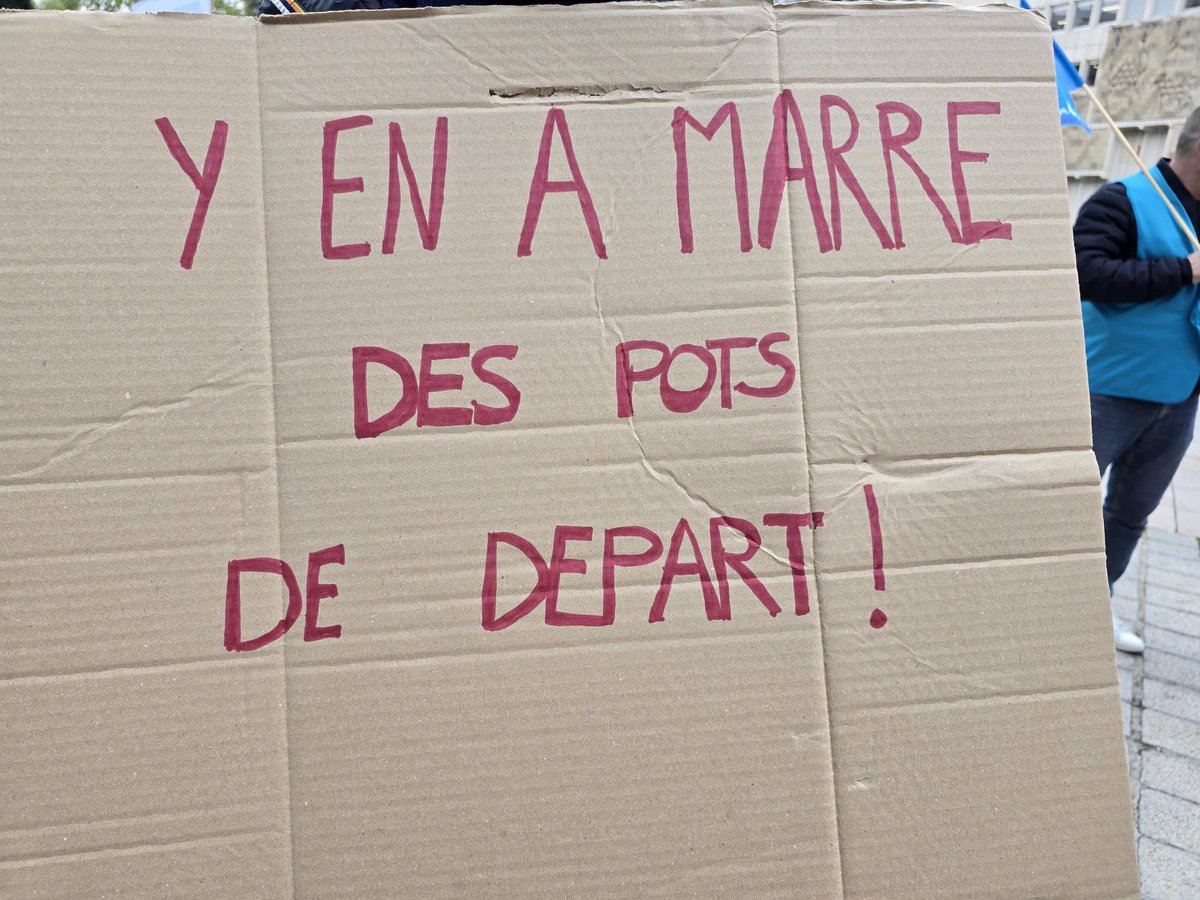 Y EN A MARRE
DES POTS
DE DEPART !